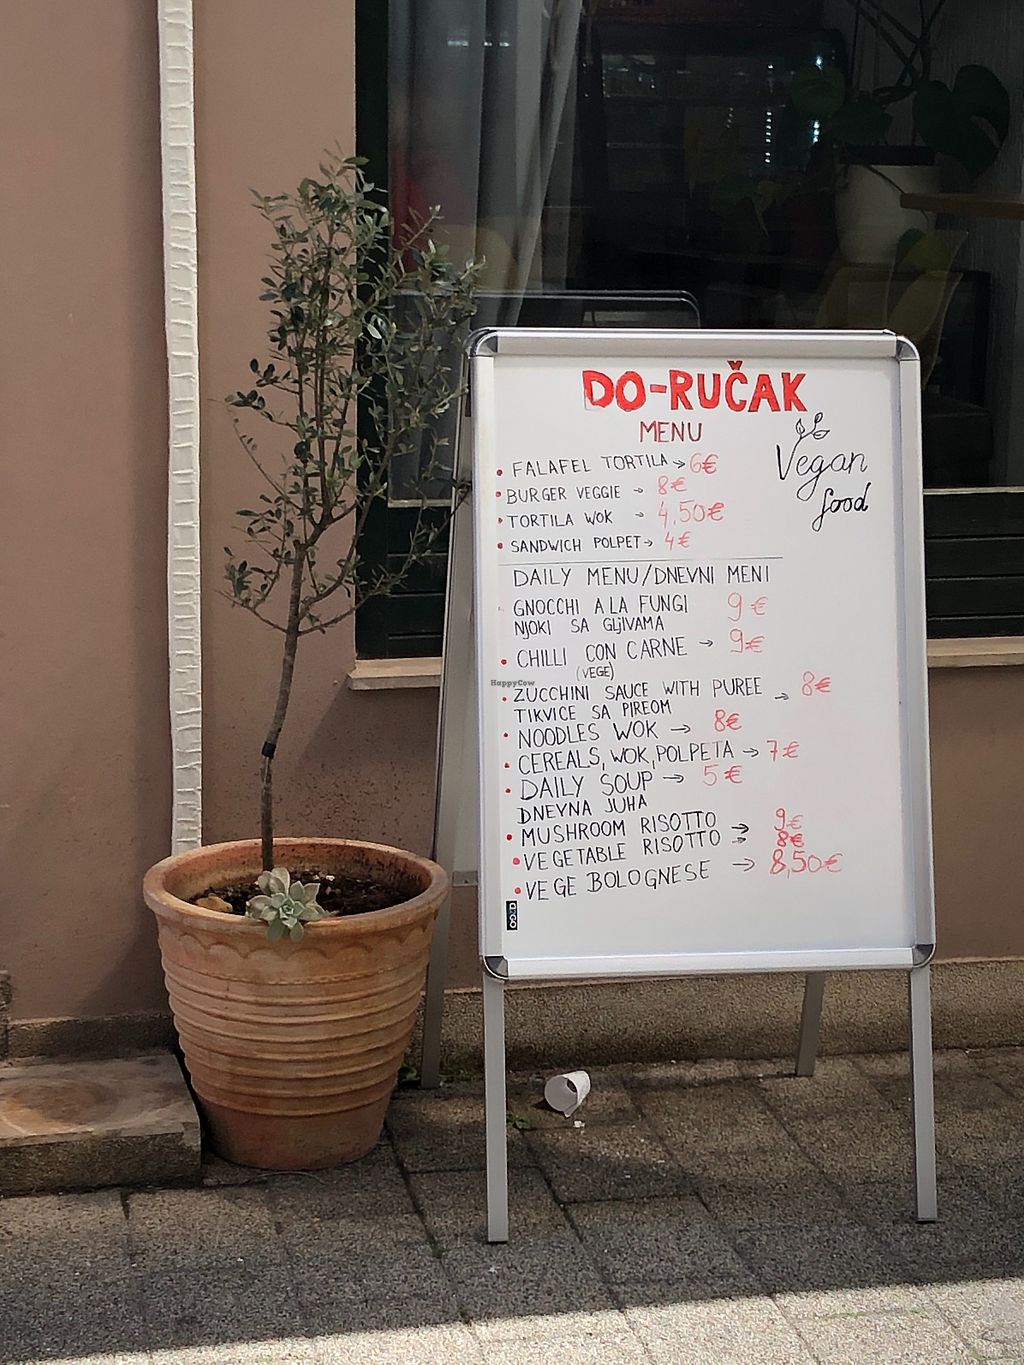 DO-RUČAK
MENU
Vegan
food
• FALAFEL TORTILA → 6€
• BURGER VEGGIE → 8€
• TORTILA WOK → 4,50€
• SANDWICH POLPET → 4€
DAILY MENU/DNEVNI MENI
• GNOCCHI A LA FUNGI 9€
NJOKI SA GLJIVAMA
• CHILLI CON CARNE → 9€
(VEGE)
HappyCow
• ZUCCHINI SAUCE WITH PUREE → 8€
TIKVICE SA PIREOM
• NOODLES WOK → 8€
• CEREALS, WOK, POLPETA → 7€
• DAILY SOUP → 5€
DNEVNA JUHA
• MUSHROOM RISOTTO → 9€
• VEGETABLE RISOTTO → 8€
• VEGE BOLOGNESE → 8,50€